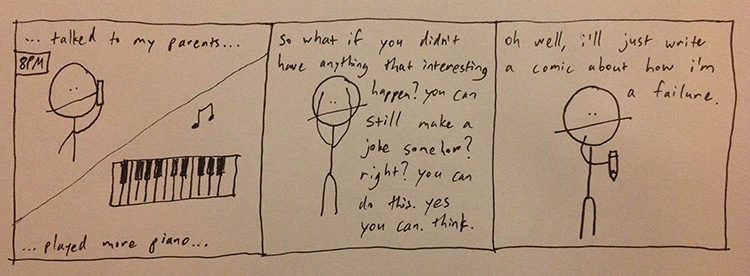 ... talked to my parents...
8PM
... played more piano...
so what if you didn't
have anything that interesting
happen? you can
still make a
joke somehow?
right? you can
do this. yes
you can. think.
oh well, i'll just write
a comic about how i'm
a failure.